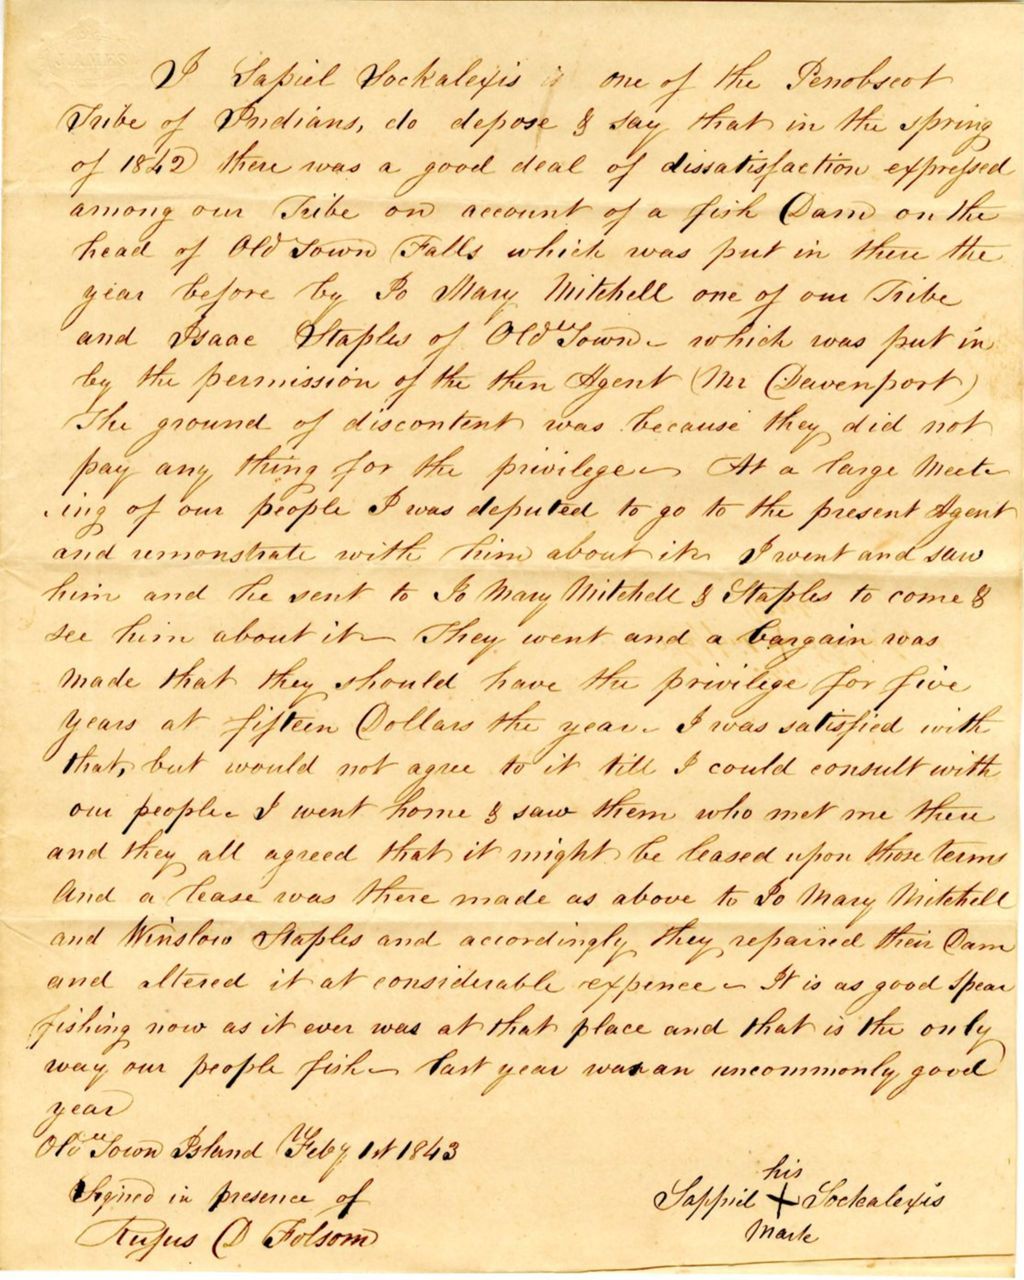 I Sapiel Sockalexis is one of the Penobscot
Tribe of Indians, do depose & say that in the spring
of 1842 there was a good deal of dissatisfaction expressed
among our Tribe on account of a fish Dam on the
head of Old Town Falls which was put in there the
year before by Jo Mary Mitchell one of our Tribe
and Isaac Staples of Old Town - which was put in
by the permission of the then Agent (Mr Davenport)
The ground of discontent was because they did not
pay any thing for the privilege - At a large Meet
-ing of our people I was deputed to go to the present Agent
and remonstrate with him about it - I went and saw
him and he sent to Jo Mary Mitchell & Staples to come &
see him about it - They went and a bargain was
made that they should have the privilege for five
years at fifteen Dollars the year - I was satisfied with
that, but would not agree to it till I could consult with
our people - I went home & saw them who met me there
and they all agreed that it might be leased upon those terms
And a lease was there made as above to Jo Mary Mitchell
and Winslow Staples and accordingly they repaired their Dam
and altered it at considerable expence - It is as good Spear
fishing now as it ever was at that place and that is the only
way our people fish - last year was an uncommonly good
year
Old Town Island Feby 1st 1843
Signed in presence of
his
Sappiel X Sockalexis
Rufus D Folsom
Mark